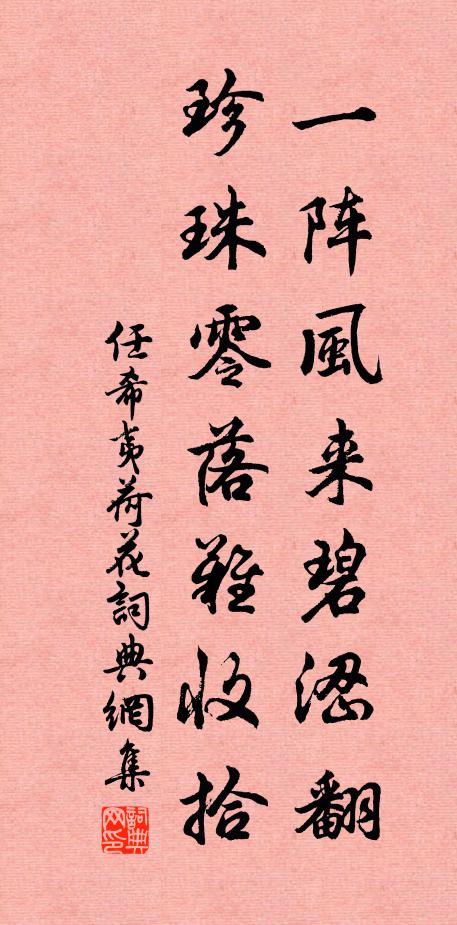 一阵風来碧浪翻
珍珠零落難收拾
任希夷荷花詞典網集
詞典网印